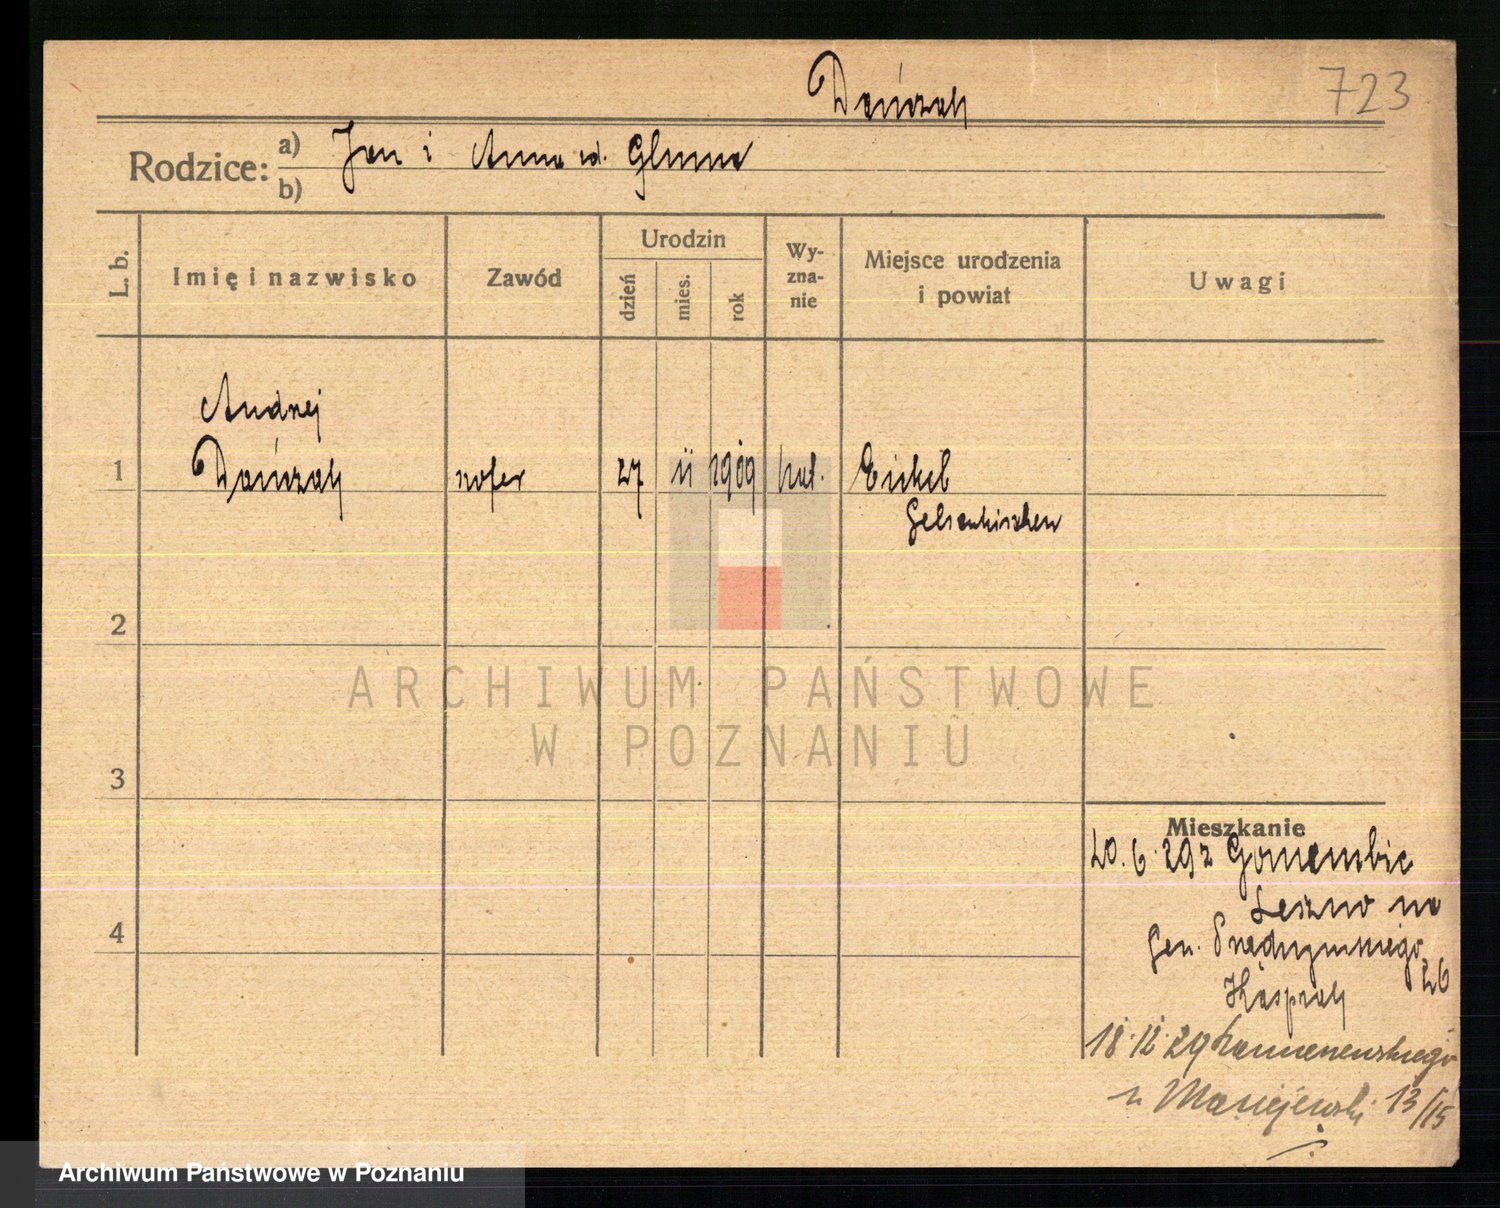 Dańczak 723
Rodzice: a) Jan i Anna zd. Gluma
b)
L. b. Imię i nazwisko Zawód Urodzin dzień mies. rok Wyznanie Miejsce urodzenia i powiat Uwagi
Andrzej
1 Dańczak szofer 27 11 1909 kat. Eickel
Gelsenkirchen
2
ARCHIWUM PAŃSTWOWE
W POZNANIU
3
Mieszkanie
20. 6. 29 z
Leszno
4
Gen. Prądzyńskiego 26
Kasprzak
18. 12. 29
u Maciejewski 13/15
Archiwum Państwowe w Poznaniu